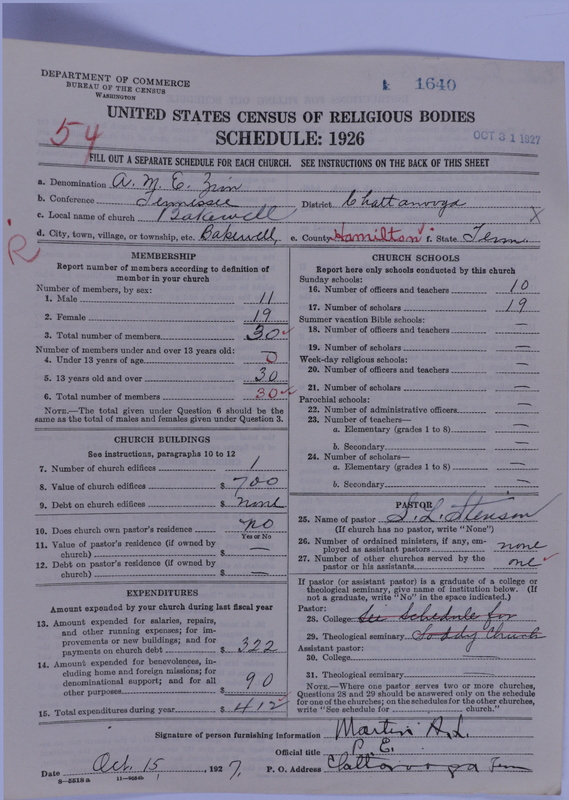 DEPARTMENT OF COMMERCE
BUREAU OF THE CENSUS
WASHINGTON
1640
UNITED STATES CENSUS OF RELIGIOUS BODIES
SCHEDULE: 1926
54
OCT 31 1927
FILL OUT A SEPARATE SCHEDULE FOR EACH CHURCH. SEE INSTRUCTIONS ON THE BACK OF THIS SHEET
a. Denomination A. M. E. Zion
b. Conference Tennissee District Chattanooga
c. Local name of church Bakewell X
d. City, town, village, or township, etc. Bakewell, e. County Hamilton f. State Tenn.
R
MEMBERSHIP
Report number of members according to definition of member in your church
Number of members, by sex:
1. Male 11
2. Female 19
3. Total number of members 30
Number of members under and over 13 years old:
4. Under 13 years of age 0
5. 13 years old and over 30
6. Total number of members 30
NOTE.—The total given under Question 6 should be the
same as the total of males and females given under Question 3.
CHURCH BUILDINGS
See instructions, paragraphs 10 to 12
7. Number of church edifices 1
8. Value of church edifices $ 700
9. Debt on church edifices $ none
10. Does church own pastor's residence no
Yes or No
11. Value of pastor's residence (if owned by
church) $ —
12. Debt on pastor's residence (if owned by
church) $ —
EXPENDITURES
Amount expended by your church during last fiscal year
13. Amount expended for salaries, repairs,
and other running expenses; for im-
provements or new buildings; and for
payments on church debt $ 322
14. Amount expended for benevolences, in-
cluding home and foreign missions; for
denominational support; and for all
other purposes $ 90
15. Total expenditures during year $ 412
CHURCH SCHOOLS
Report here only schools conducted by this church
Sunday schools:
16. Number of officers and teachers 10
17. Number of scholars 19
Summer vacation Bible schools:
18. Number of officers and teachers —
19. Number of scholars —
Week-day religious schools:
20. Number of officers and teachers —
21. Number of scholars —
Parochial schools:
22. Number of administrative officers —
23. Number of teachers—
a. Elementary (grades 1 to 8) —
b. Secondary —
24. Number of scholars—
a. Elementary (grades 1 to 8) —
b. Secondary —
PASTOR
25. Name of pastor S. L. Stenson
(If church has no pastor, write "None")
26. Number of ordained ministers, if any, em-
ployed as assistant pastors none
27. Number of other churches served by the
pastor or his assistants one
If pastor (or assistant pastor) is a graduate of a college or
theological seminary, give name of institution below. (If
not a graduate, write "No" in the space indicated.)
Pastor:
28. College See Schedule for
29. Theological seminary Soddy Church
Assistant pastor:
30. College —
31. Theological seminary —
NOTE.—Where one pastor serves two or more churches,
Questions 28 and 29 should be answered only on the schedule
for one of the churches; on the schedules for the other churches,
write "See schedule for church."
Signature of person furnishing information Martin A. L.
Official title P. E.
Date Oct. 15, 1927. P. O. Address Chattanooga Tenn
8-5518a